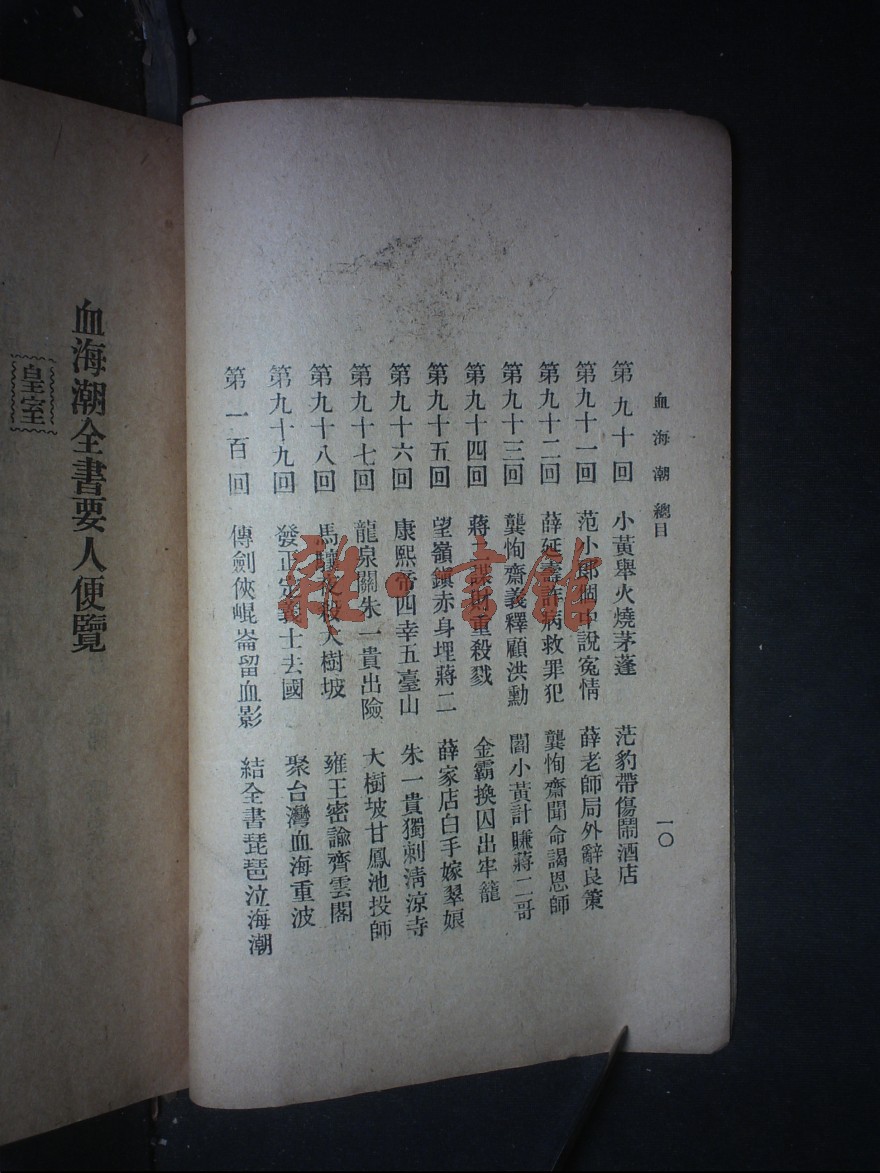 血海潮 總目
一〇
第九十回 小黃舉火燒茅蓬 茫豹帶傷鬧酒店
第九十一回 范小郎個中說冤情 薛老師局外辭良策
第九十二回 薛延壽許病救罪犯 龔恂齋聞命謁恩師
第九十三回 龔恂齋義釋顧洪勳 閻小黃計賺蔣二哥
第九十四回 蔣二謀財重殺戮 金霸換囚出牢籠
第九十五回 望嶺鎮赤身埋蔣二 薛家店白手嫁翠娘
第九十六回 康熙帝四幸五臺山 朱一貴獨刺清涼寺
第九十七回 龍泉關朱一貴出險 大樹坡甘鳳池投師
第九十八回 馬驥夜破大樹坡 雍王密諭齊雲閣
第九十九回 發正定義士去國 聚台灣血海重波
第一百回 傳劍俠崐崙留血影 結全書琵琶泣海潮
血海潮全書要人便覽
皇室
雜·言館